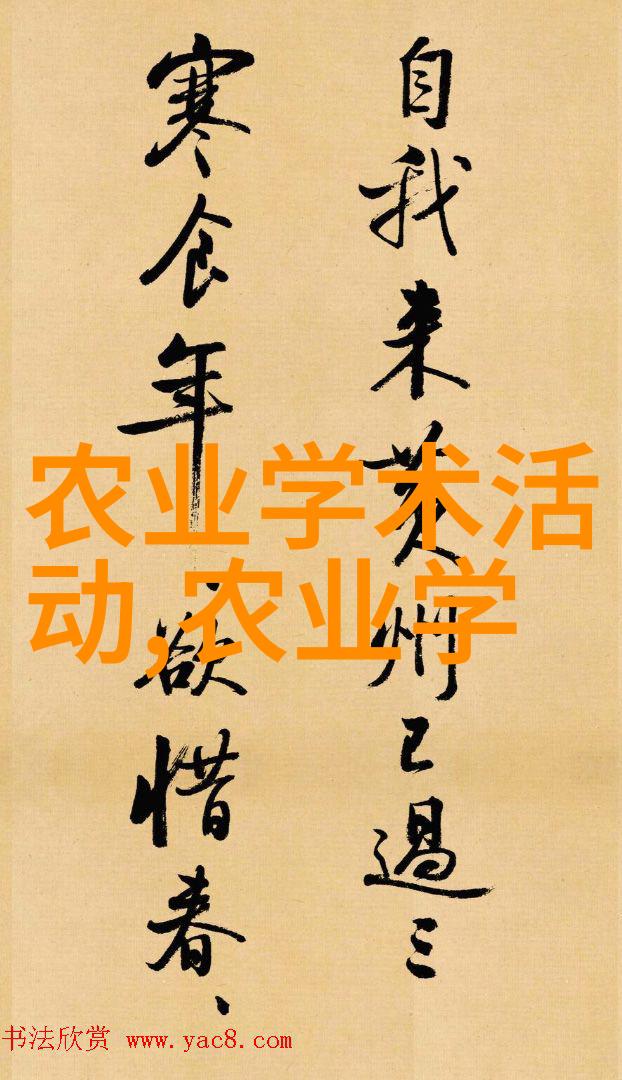 自我来黄州已過三
寒食年、欲惜春、
农业学术活
动,农业学
书法欣赏 www.yac8.com